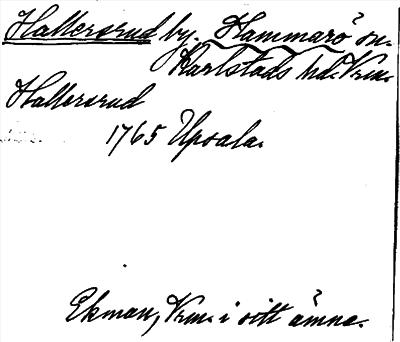 Hallersrud by. Hammarö sn.
Karlstads hd. Vrml.
Hallersrud
1765 Upsala.
Ekman, Vrml. i sitt ämne.